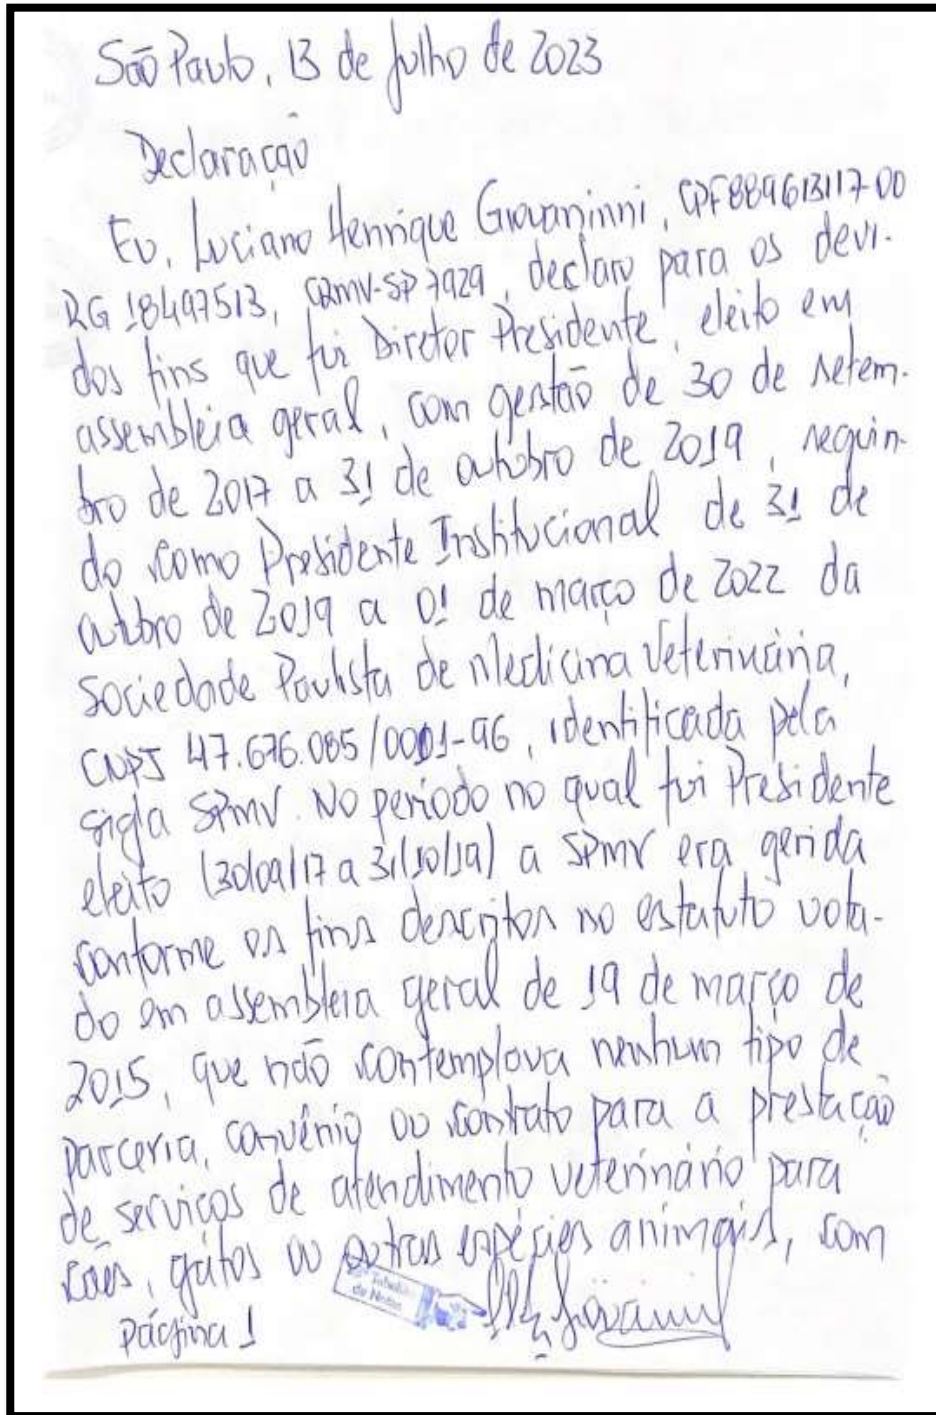 São Paulo, 13 de Julho de 2023
Declaração
Eu, Luciano Henrique Giovaninni, CPF 889613117-00
RG 18497513, CRMV-SP 7929, declaro para os devi-
dos fins que fui Diretor Presidente, eleito em
assembleia geral, com gestão de 30 de setem-
bro de 2017 a 31 de outubro de 2019, seguin-
do como Presidente Institucional de 31 de
outubro de 2019 a 01 de março de 2022 da
Sociedade Paulista de Medicina Veterinária,
CNPJ 47.676.085/0001-96, identificada pela
sigla SPMV. No período no qual fui Presidente
eleito (30/09/17 a 31/10/19) a SPMV era gerida
conforme os fins descritos no estatuto vota-
do em assembleia geral de 19 de março de
2015, que não contemplava nenhum tipo de
parceria, convênio ou contrato para a prestação
de serviços de atendimento veterinário para
cães, gatos ou outras espécies animais, com
Tabelião
de Notas
Página 1